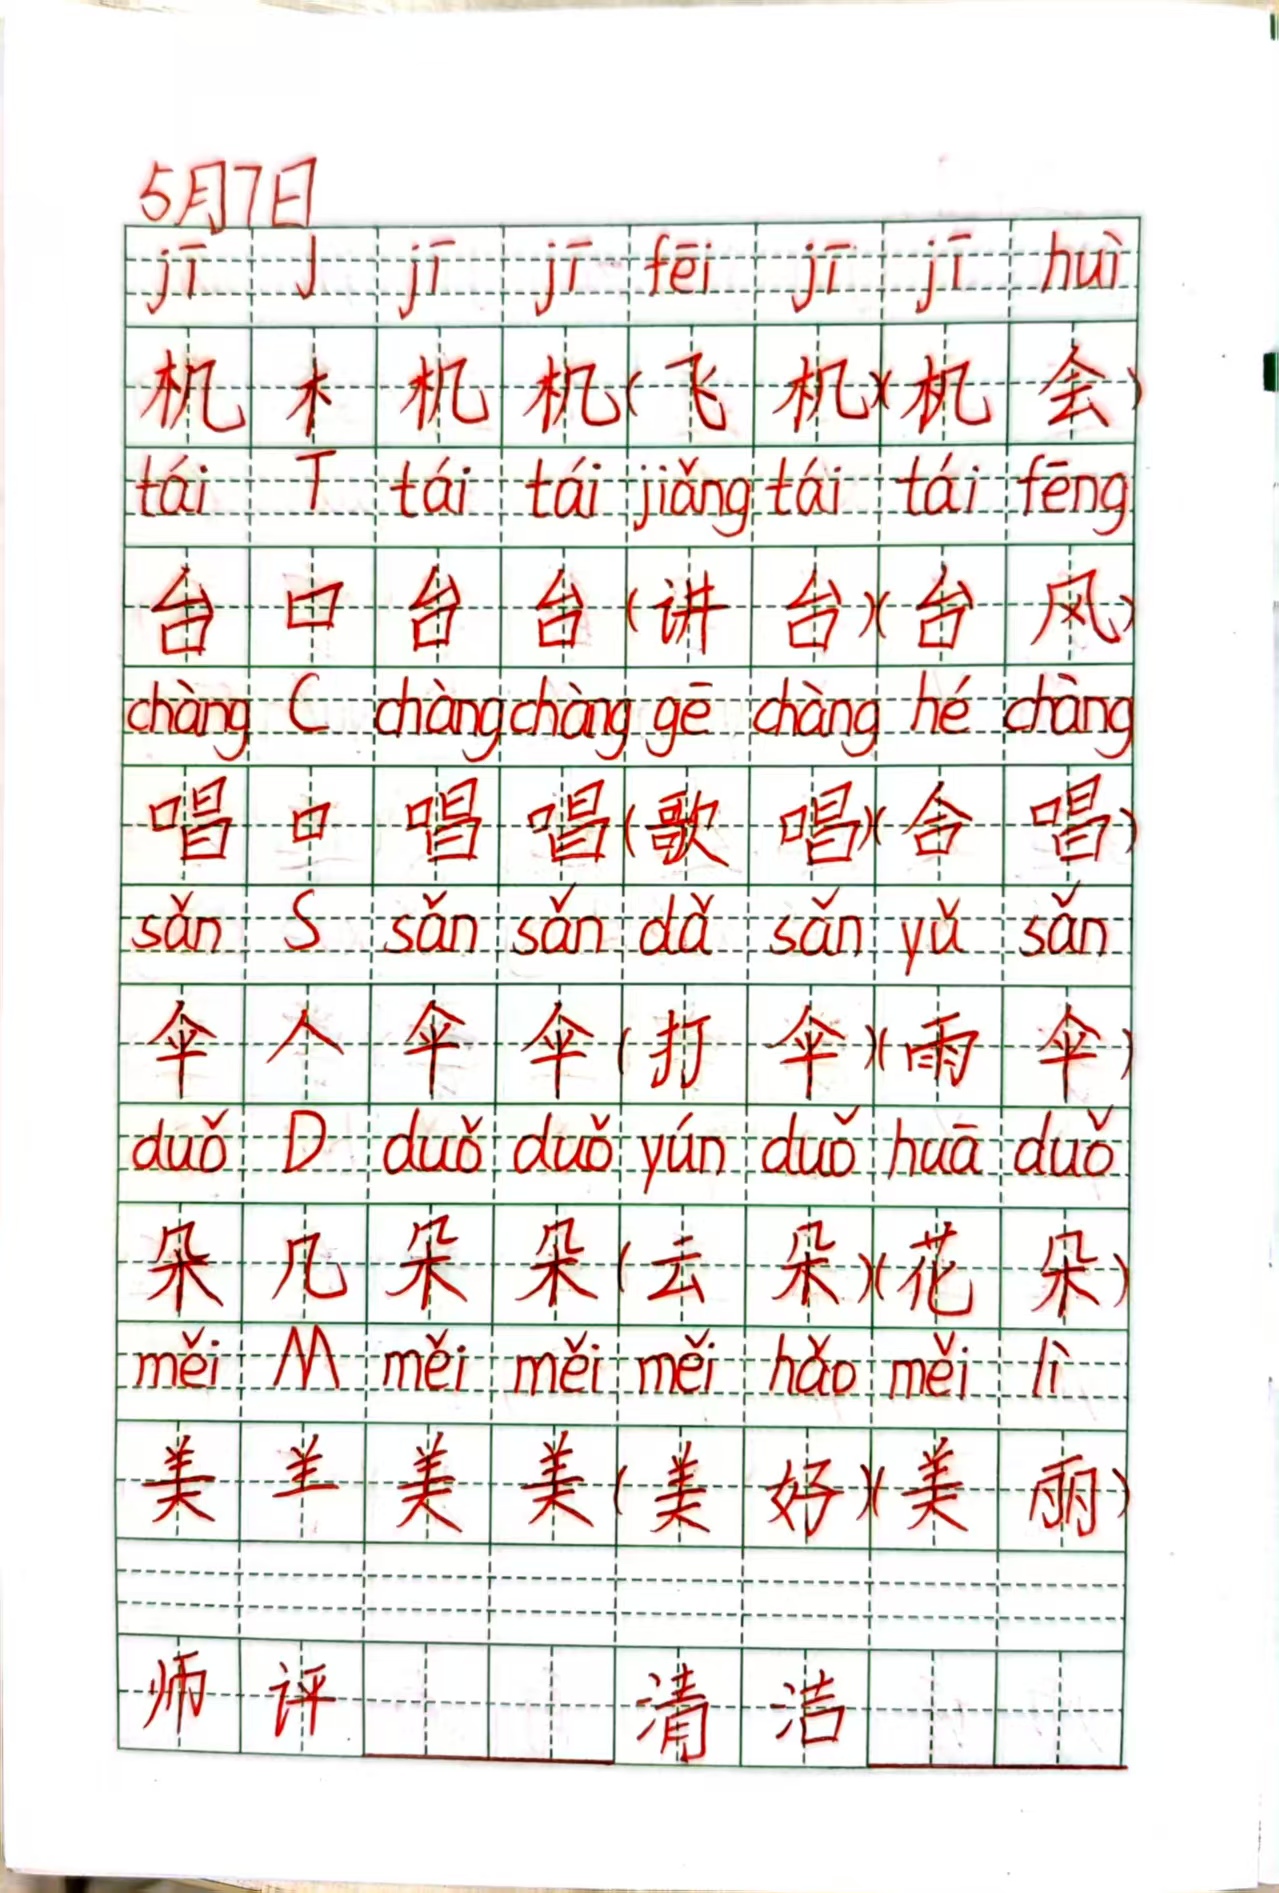 5月7日
jī J jī jī fēi jī jī huì
机 木 机 机(飞 机)(机 会)
tái T tái tái jiǎng tái tái fēng
台 口 台 台(讲 台)(台 风)
chàng C chàng chàng gē chàng hé chàng
唱 口 唱 唱(歌 唱)(合 唱)
sǎn S sǎn sǎn dǎ sǎn yǔ sǎn
伞 人 伞 伞(打 伞)(雨 伞)
duǒ D duǒ duǒ yún duǒ huā duǒ
朵 几 朵 朵(云 朵)(花 朵)
měi M měi měi měi hǎo měi lì
美 𦍌 美 美(美 好)(美 丽)
师 评 清 洁